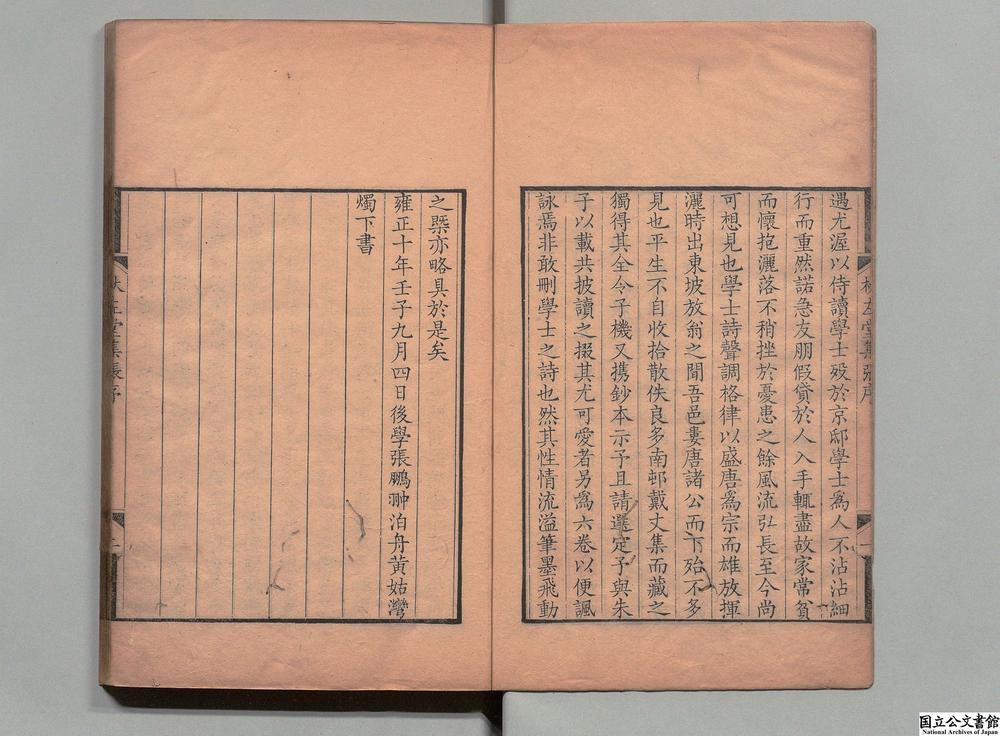 遇尤渥以侍讀學士殁於京邸學士爲人不沾沾細
行而重然諾急友朋假貸於人入手輒盡故家常貧
而懷抱灑落不稍挫於憂患之餘風流弘長至今尚
可想見也學士詩聲調格律以盛唐爲宗而雄放揮
灑時出東坡放翁之間吾邑婁唐諸公而下殆不多
見也平生不自收拾散佚良多南邨戴丈集而藏之
獨得其全今子機又携鈔本示予且請選定予與朱
子以載共披讀之掇其尤可愛者另爲六卷以便諷
詠焉非敢刪學士之詩也然其性情流溢筆墨飛動
之槩亦略具於是矣
雍正十年壬子九月四日後學張鵬翀泊舟黃姑灣
燭下書
堂集張序
国立公文書館
National Archives of Japan